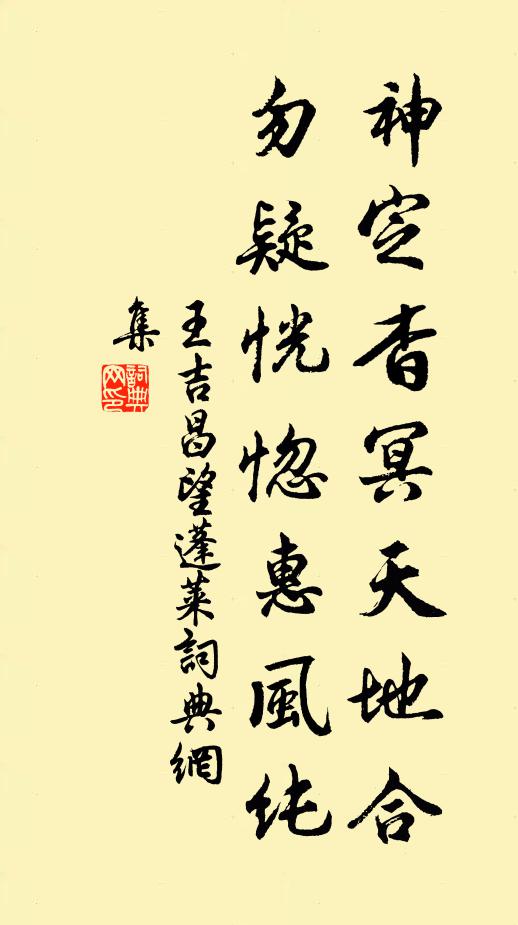 神定杳冥天地合
勿疑恍惚惠風纯
王吉昌望蓬萊詞典網
集
詞典網印